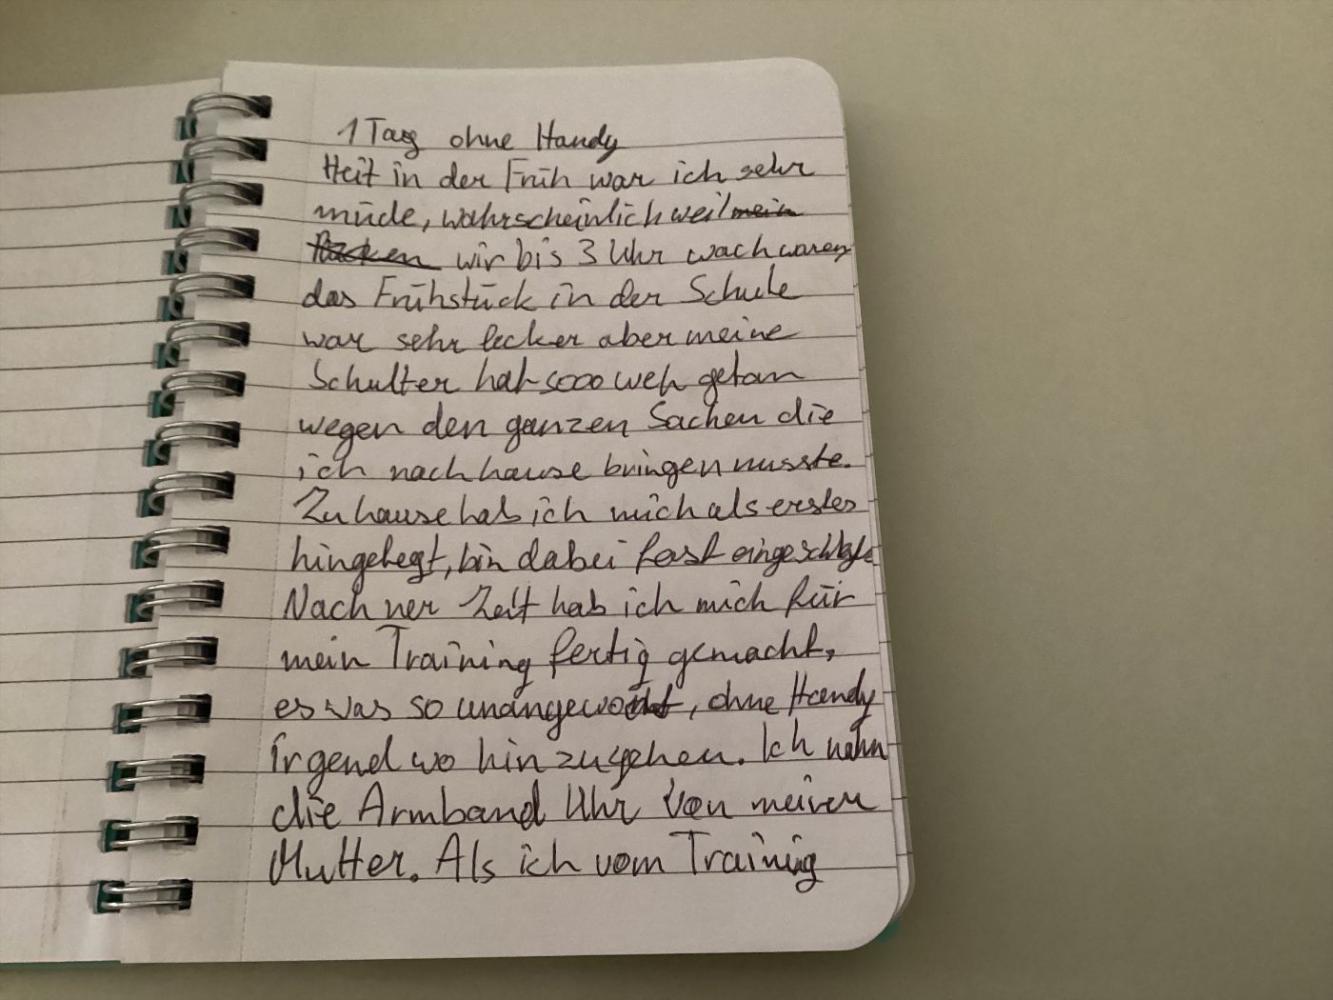 1 Tag ohne Handy
Heit in der Früh war ich sehr
müde, wahrscheinlich weil mein
wir bis 3 Uhr wach waren
das Frühstück in der Schule
war sehr lecker aber meine
Schulter hat sooo weh getan
wegen den ganzen Sachen die
ich nach hause bringen musste.
Zuhause hab ich mich als erstes
hingelegt, bin dabei fast eingeschlafe
Nach ner Zeit hab ich mich für
mein Training fertig gemacht,
es was so unangewohnt, ohne Handy
irgend wo hin zu gehen. Ich nahm
die Armband Uhr von meiner
Mutter. Als ich vom Training